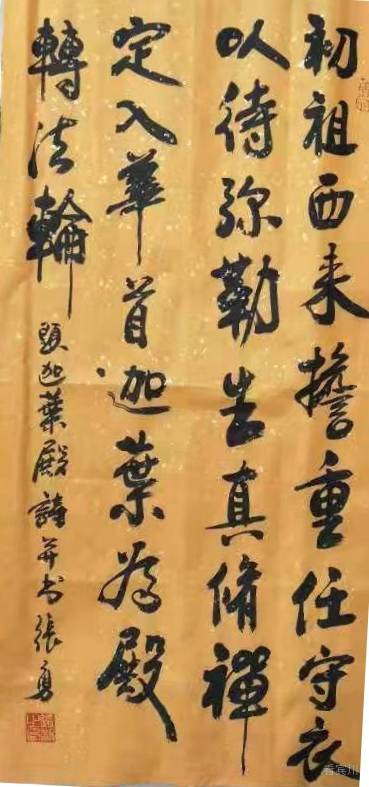 初祖西来擔重任守衣
以待弥勒生真脩禪
定入華首迦葉為殿
轉法輪
題迦葉殿詩並书張勇
看宾川